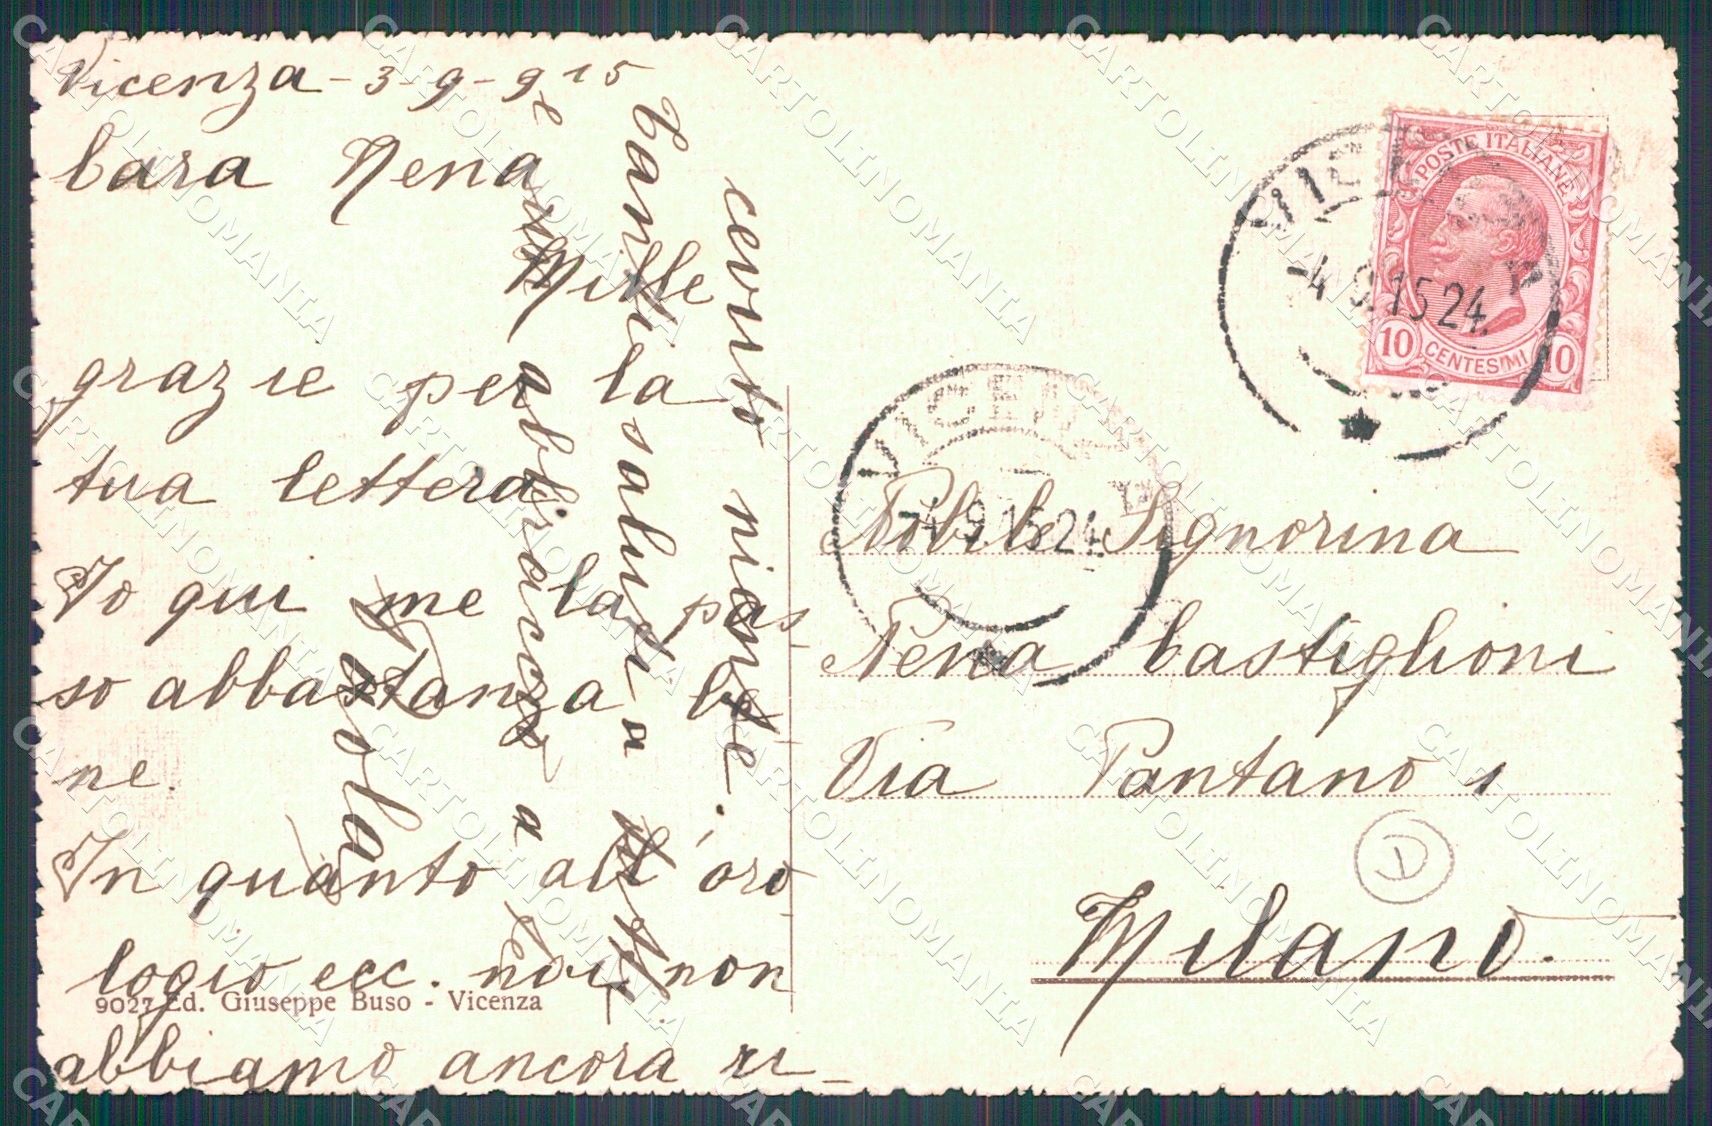 Vicenza - 3-9-915
Cara Nena
Mille
grazie per la
tua lettera
Io qui me la pas-
so abbastanza be-
ne.
In quanto all'oro-
logio ecc. noi non
abbiamo ancora ri-
cevuto niente.
Tanti saluti a
e un abbraccio a
te
9027 Ed. Giuseppe Buso - Vicenza
POSTE ITALIANE
10 CENTESIMI 10
VICENZA
-4.9.15 24
VICENZA
-4.9.15 24
Nobile Signorina
Nena Castiglioni
Via Pantano 1
Milano.
D
CARTOLINOMANIA